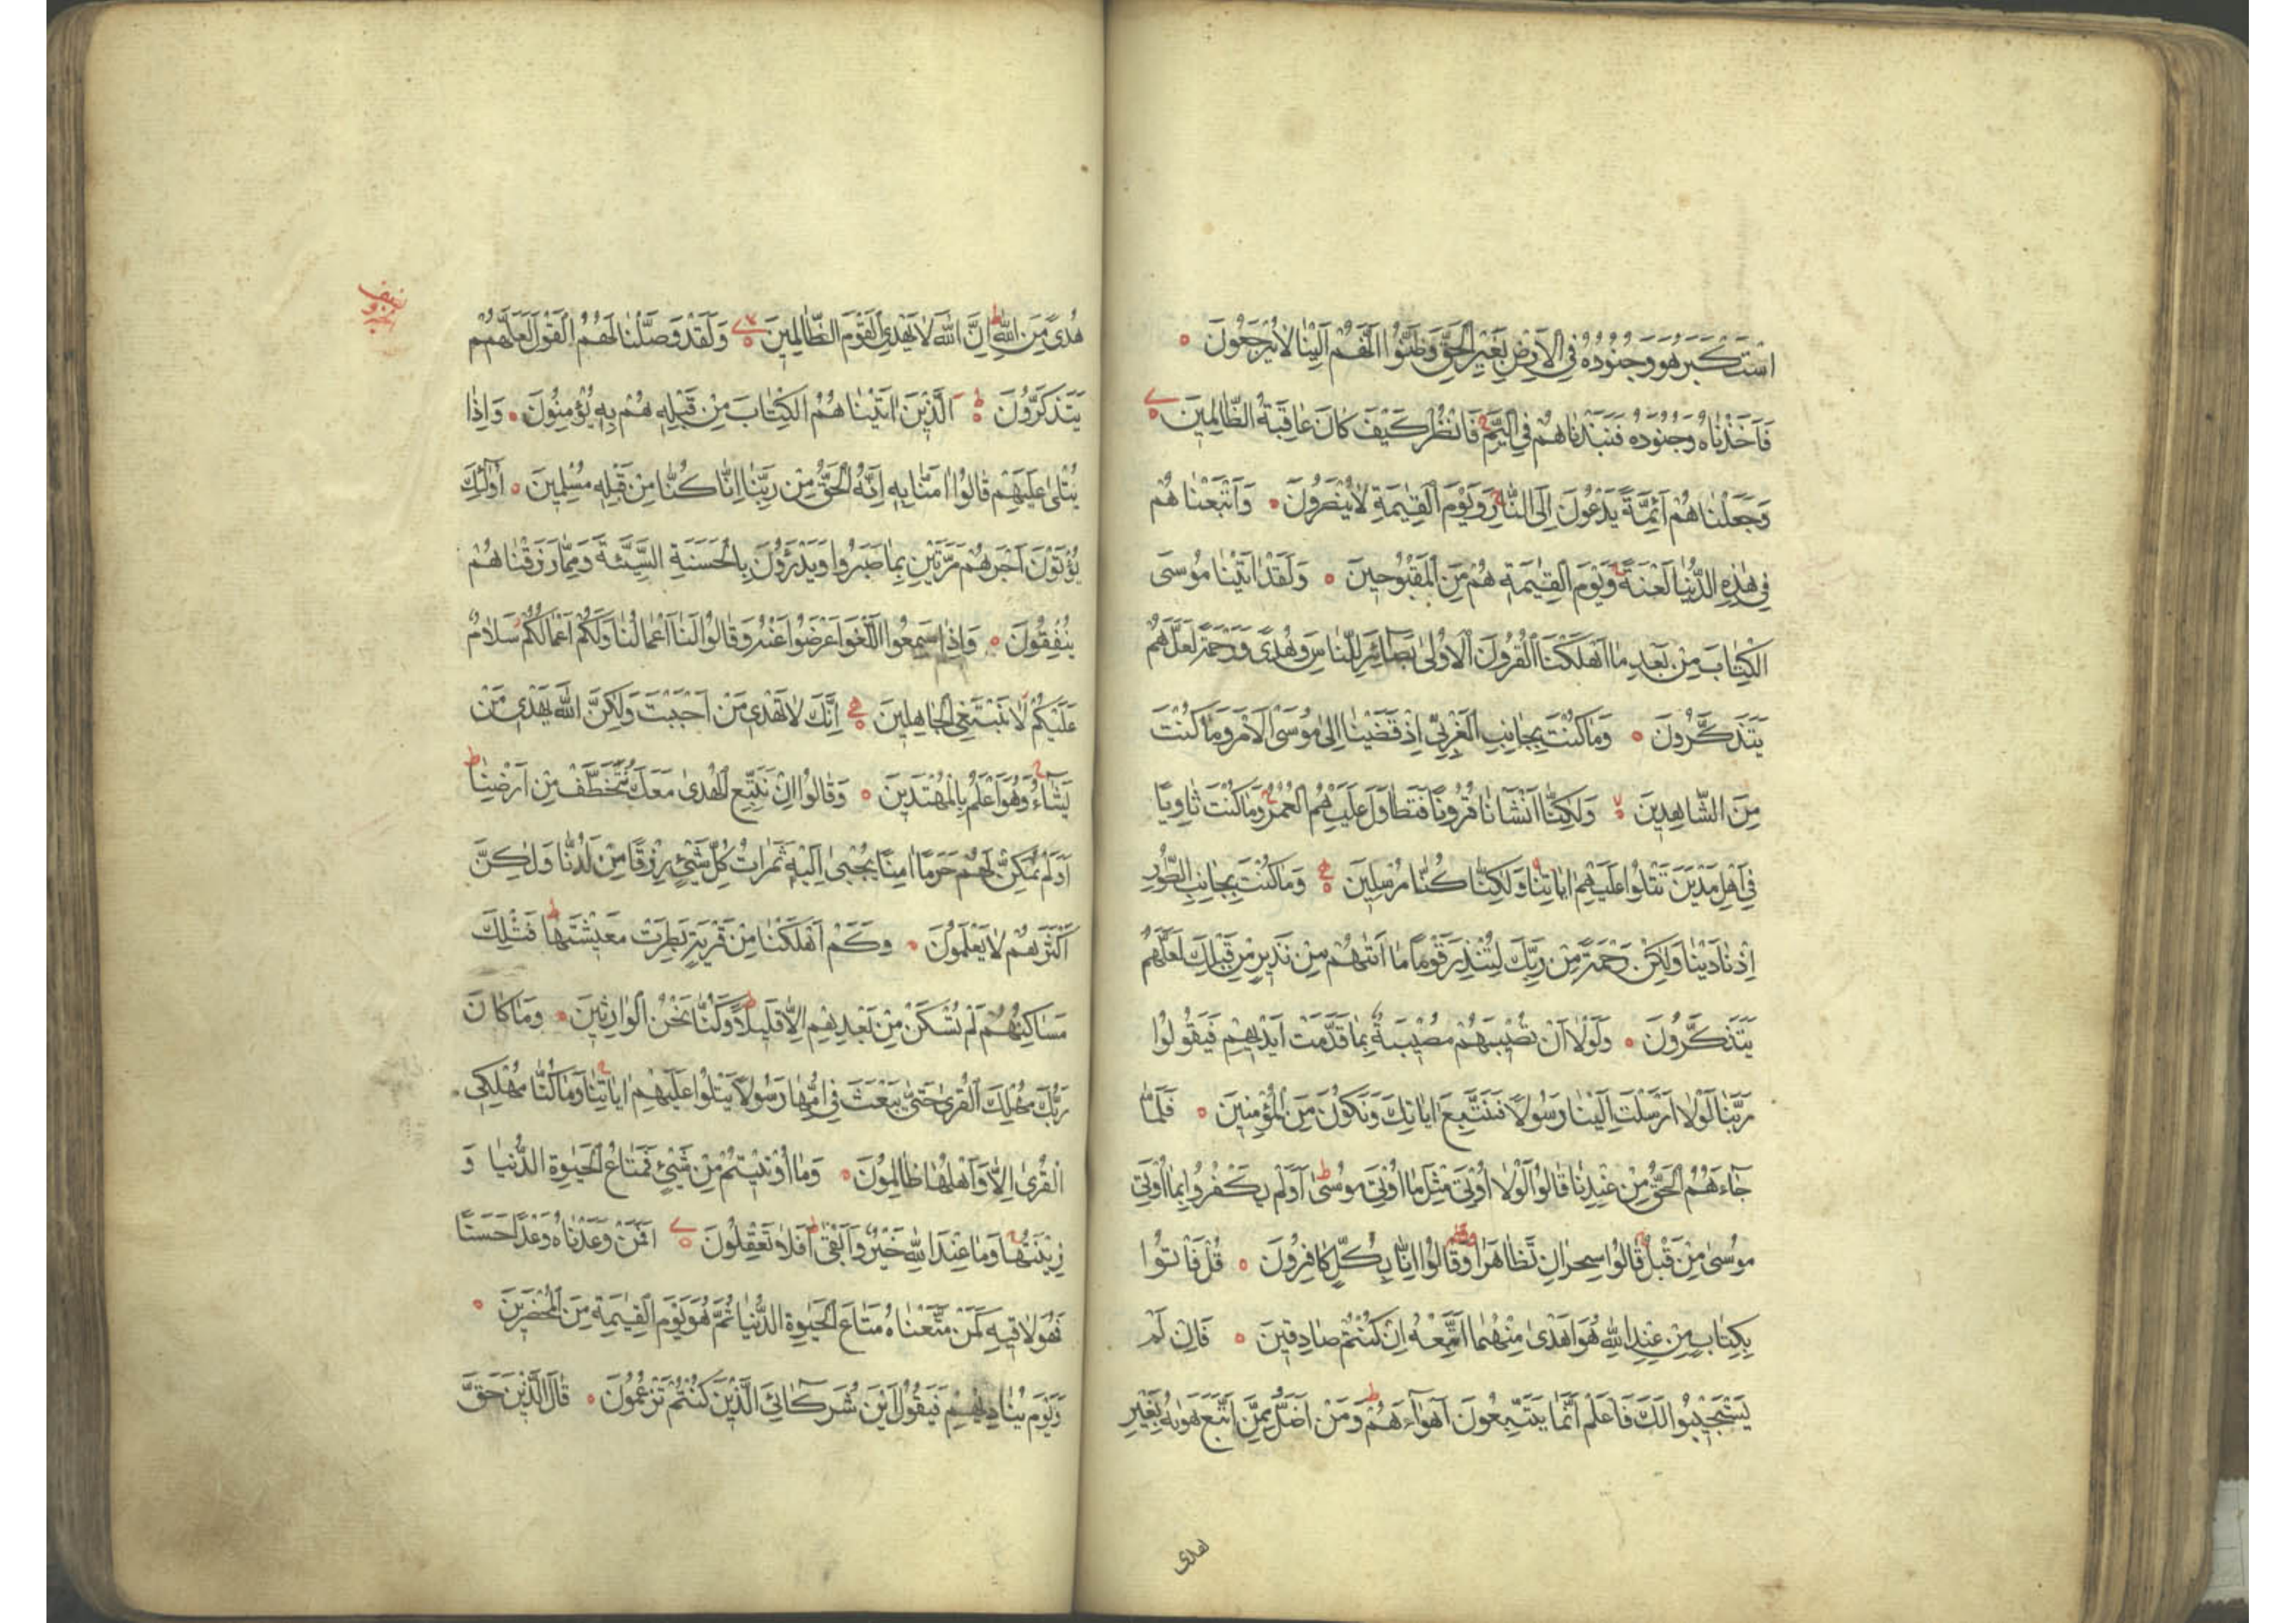 اسْتَكْبَرَ هُوَ وَجُنُودُهُ فِي الْاَرْضِ بِغَيْرِ الْحَقِّ وَظَنُّوا اَنَّهُمْ اِلَيْنَا لَا يُرْجَعُونَ
فَاَخَذْنَاهُ وَجُنُودَهُ فَنَبَذْنَاهُمْ فِي الْيَمِّ فَانْظُرْ كَيْفَ كَانَ عَاقِبَةُ الظَّالِمِينَ
وَجَعَلْنَاهُمْ اَئِمَّةً يَدْعُونَ اِلَى النَّارِ وَيَوْمَ الْقِيٰمَةِ لَا يُنْصَرُونَ وَاَتْبَعْنَاهُمْ
فِي هٰذِهِ الدُّنْيَا لَعْنَةً وَيَوْمَ الْقِيٰمَةِ هُمْ مِنَ الْمَقْبُوحِينَ وَلَقَدْ اٰتَيْنَا مُوسَى
الْكِتَابَ مِنْ بَعْدِ مَا اَهْلَكْنَا الْقُرُونَ الْاُولٰى بَصَائِرَ لِلنَّاسِ وَهُدًى وَرَحْمَةً لَعَلَّهُمْ
يَتَذَكَّرُونَ وَمَا كُنْتَ بِجَانِبِ الْغَرْبِيِّ اِذْ قَضَيْنَا اِلٰى مُوسَى الْاَمْرَ وَمَا كُنْتَ
مِنَ الشَّاهِدِينَ وَلٰكِنَّا اَنْشَأْنَا قُرُونًا فَتَطَاوَلَ عَلَيْهِمُ الْعُمُرُ وَمَا كُنْتَ ثَاوِيًا
فِي اَهْلِ مَدْيَنَ تَتْلُوا عَلَيْهِمْ اٰيَاتِنَا وَلٰكِنَّا كُنَّا مُرْسِلِينَ وَمَا كُنْتَ بِجَانِبِ الطُّورِ
اِذْ نَادَيْنَا وَلٰكِنْ رَحْمَةً مِنْ رَبِّكَ لِتُنْذِرَ قَوْمًا مَا اَتٰيهُمْ مِنْ نَذِيرٍ مِنْ قَبْلِكَ لَعَلَّهُمْ
يَتَذَكَّرُونَ وَلَوْلَا اَنْ تُصِيبَهُمْ مُصِيبَةٌ بِمَا قَدَّمَتْ اَيْدِيهِمْ فَيَقُولُوا
رَبَّنَا لَوْلَا اَرْسَلْتَ اِلَيْنَا رَسُولًا فَنَتَّبِعَ اٰيَاتِكَ وَنَكُونَ مِنَ الْمُؤْمِنِينَ فَلَمَّا
جَاءَهُمُ الْحَقُّ مِنْ عِنْدِنَا قَالُوا لَوْلَا اُوتِيَ مِثْلَ مَا اُوتِيَ مُوسٰى اَوَلَمْ يَكْفُرُوا بِمَا اُوتِيَ
مُوسٰى مِنْ قَبْلُ قَالُوا سِحْرَانِ تَظَاهَرَا وَقَالُوا اِنَّا بِكُلٍّ كَافِرُونَ قُلْ فَأْتُوا
بِكِتَابٍ مِنْ عِنْدِ اللّٰهِ هُوَ اَهْدٰى مِنْهُمَا اَتَّبِعْهُ اِنْ كُنْتُمْ صَادِقِينَ فَاِنْ لَمْ
يَسْتَجِيبُوا لَكَ فَاعْلَمْ اَنَّمَا يَتَّبِعُونَ اَهْوَاءَهُمْ وَمَنْ اَضَلُّ مِمَّنِ اتَّبَعَ هَوٰيهُ بِغَيْرِ
هدى
هُدًى مِنَ اللّٰهِ اِنَّ اللّٰهَ لَا يَهْدِي الْقَوْمَ الظَّالِمِينَ وَلَقَدْ وَصَّلْنَا لَهُمُ الْقَوْلَ لَعَلَّهُمْ
يَتَذَكَّرُونَ اَلَّذِينَ اٰتَيْنَاهُمُ الْكِتَابَ مِنْ قَبْلِهِ هُمْ بِهِ يُؤْمِنُونَ وَاِذَا
يُتْلٰى عَلَيْهِمْ قَالُوا اٰمَنَّا بِهِ اِنَّهُ الْحَقُّ مِنْ رَبِّنَا اِنَّا كُنَّا مِنْ قَبْلِهِ مُسْلِمِينَ اُولٰئِكَ
يُؤْتَوْنَ اَجْرَهُمْ مَرَّتَيْنِ بِمَا صَبَرُوا وَيَدْرَؤُنَ بِالْحَسَنَةِ السَّيِّئَةَ وَمِمَّا رَزَقْنَاهُمْ
يُنْفِقُونَ وَاِذَا سَمِعُوا اللَّغْوَ اَعْرَضُوا عَنْهُ وَقَالُوا لَنَا اَعْمَالُنَا وَلَكُمْ اَعْمَالُكُمْ سَلَامٌ
عَلَيْكُمْ لَا نَبْتَغِي الْجَاهِلِينَ اِنَّكَ لَا تَهْدِي مَنْ اَحْبَبْتَ وَلٰكِنَّ اللّٰهَ يَهْدِي مَنْ
يَشَاءُ وَهُوَ اَعْلَمُ بِالْمُهْتَدِينَ وَقَالُوا اِنْ نَتَّبِعِ الْهُدٰى مَعَكَ نُتَخَطَّفْ مِنْ اَرْضِنَا
اَوَلَمْ نُمَكِّنْ لَهُمْ حَرَمًا اٰمِنًا يُجْبٰى اِلَيْهِ ثَمَرَاتُ كُلِّ شَيْءٍ رِزْقًا مِنْ لَدُنَّا وَلٰكِنَّ
اَكْثَرَهُمْ لَا يَعْلَمُونَ وَكَمْ اَهْلَكْنَا مِنْ قَرْيَةٍ بَطِرَتْ مَعِيشَتَهَا فَتِلْكَ
مَسَاكِنُهُمْ لَمْ تُسْكَنْ مِنْ بَعْدِهِمْ اِلَّا قَلِيلًا وَكُنَّا نَحْنُ الْوَارِثِينَ وَمَا كَانَ
رَبُّكَ مُهْلِكَ الْقُرٰى حَتّٰى يَبْعَثَ فِي اُمِّهَا رَسُولًا يَتْلُوا عَلَيْهِمْ اٰيَاتِنَا وَمَا كُنَّا مُهْلِكِي
الْقُرٰى اِلَّا وَاَهْلُهَا ظَالِمُونَ وَمَا اُوتِيتُمْ مِنْ شَيْءٍ فَمَتَاعُ الْحَيٰوةِ الدُّنْيَا وَ
زِينَتُهَا وَمَا عِنْدَ اللّٰهِ خَيْرٌ وَاَبْقٰى اَفَلَا تَعْقِلُونَ اَفَمَنْ وَعَدْنَاهُ وَعْدًا حَسَنًا
فَهُوَ لَاقِيهِ كَمَنْ مَتَّعْنَاهُ مَتَاعَ الْحَيٰوةِ الدُّنْيَا ثُمَّ هُوَ يَوْمَ الْقِيٰمَةِ مِنَ الْمُحْضَرِينَ
وَيَوْمَ يُنَادِيهِمْ فَيَقُولُ اَيْنَ شُرَكَائِيَ الَّذِينَ كُنْتُمْ تَزْعُمُونَ قَالَ الَّذِينَ حَقَّ